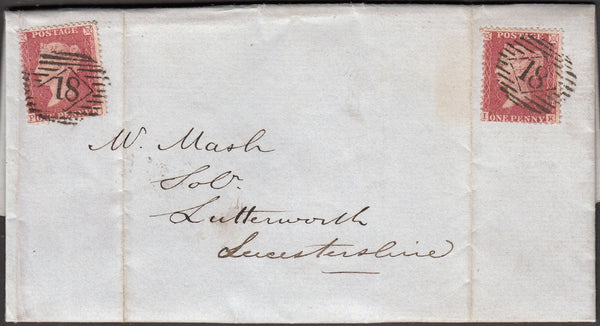 POSTAGE
18
ONE PENNY
POSTAGE
18
ONE PENNY
Mr. Mash
Solr.
Lutterworth
Leicestershire